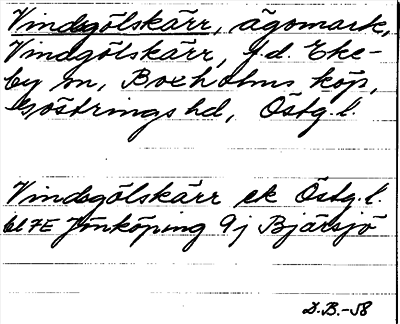 Vindsgölskärr, ägomark,
Vindgölskärr, f.d. Eke-
by sn, Boxholms köp,
Göstrings hd, Östg.l.
Vindsgölskärr ek Östg.l.
bl 7E Jönköping 9j Bjärsjö
D.B.-58